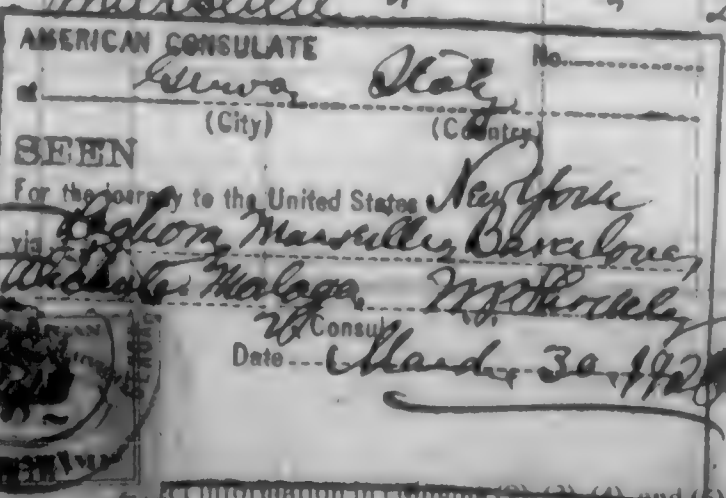 Marseille
AMERICAN CONSULATE
No.
at Genoa, Italy
(City) (Country)
SEEN
For the journey to the United States New York
via Leghorn, Marseille, Barcelona,
Malaga,
V Consul
Date March 30, 192